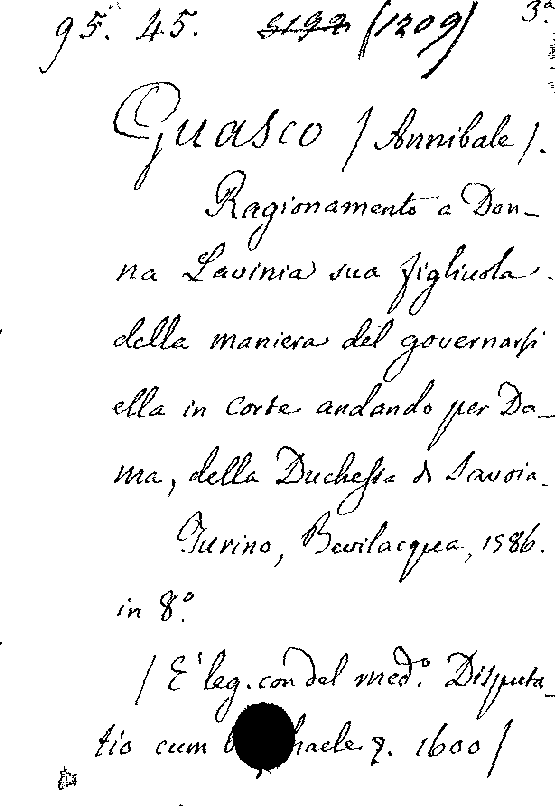 95. 45. 5192 (1209) 3ª
Guasco / Annibale /.
Ragionamento a Don-
na Lavinia sua figliuola
della maniera del governarsi
ella in corte andando per Da-
ma, della Duchessa di Savoia.
Turino, Bevilacqua, 1586.
in 8º.
/ E' leg. con del medº. Disputa-
tio cum haele 7. 1600 /